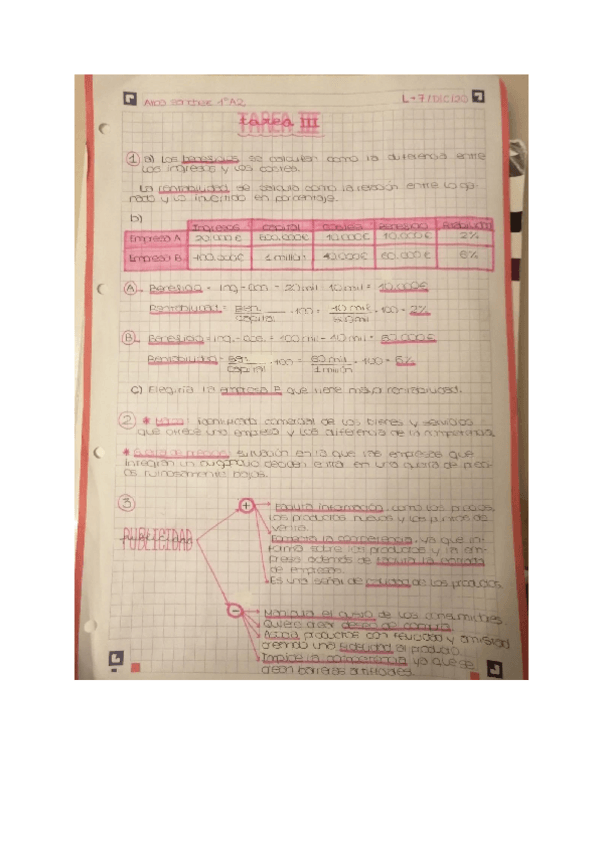 1ºA2
L-7/DIC/20
TAREA III
1 a) Los beneficios se calculan como la diferencia entre
los ingresos y los costes.
La rentabilidad se calcula como la relación entre lo ga-
nado y lo invertido en porcentaje.
b)
Ingresos Capital Costes Beneficio Rentabilidad
Empresa A 20.000€ 500.000€ 10.000€ 10.000€ 2%
Empresa B 100.000€ 1 millón 40.000€ 60.000€ 6%
A Beneficio = ing.-cos. = 20 mil - 10 mil = 10.000€
Rentabilidad = Ben. / Capital · 100 = 10 mil / 500 mil · 100 = 2%
B Beneficio = ing.- cos. = 100 mil - 40 mil = 60.000€
Rentabilidad = Ben. / Capital · 100 = 60 mil / 1 millón · 100 = 6%
c) Elegiría la empresa B que tiene mayor rentabilidad.
2 * identificada comercial de los bienes y servicios
que ofrece una empresa y los diferencia de la competencia.
* Guerra de precios: situación en la que las empresas que
integran un oligopolio deciden entrar en una guerra de preci-
os ruinosamente bajos.
3
PUBLICIDAD
+
Facilita información, como los precios,
los productos nuevos y los puntos de
venta.
Fomenta la competencia, ya que in-
forma sobre los productos y la em-
presa además de facilita la entrada
de empresas.
Es una señal de calidad de los productos.
-
Manipula el gusto de los consumidores.
Quiere crear deseo de compra.
Asocia productos con felicidad y amistad
creando una fidelidad al producto.
Impide la competencia ya que se
crean barreras artificiales.